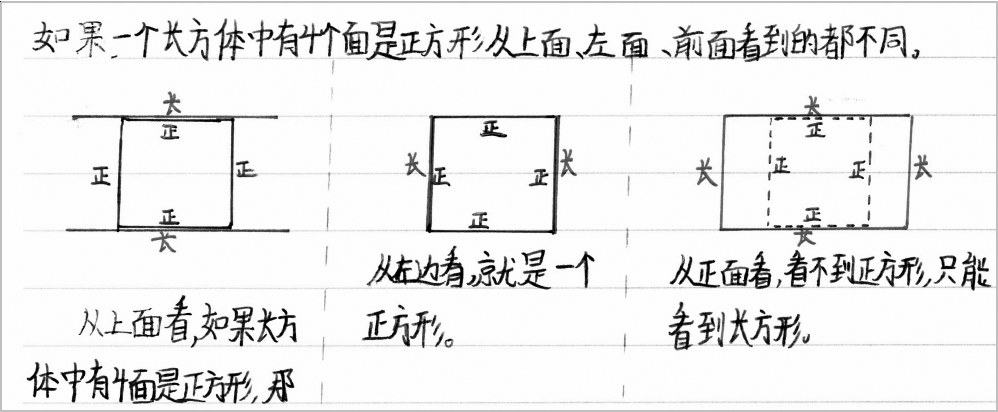 如果一个长方体中有4个面是正方形从上面、左面、前面看到的都不同。
长
正
正 正
正
长
正
长 正 正 长
正
长
正
长 正 正 长
正
长
从上面看,如果太方
体中有4面是正方形,那
从左边看,就是一个
正方形。
从正面看,看不到正方形,只能
看到长方形。